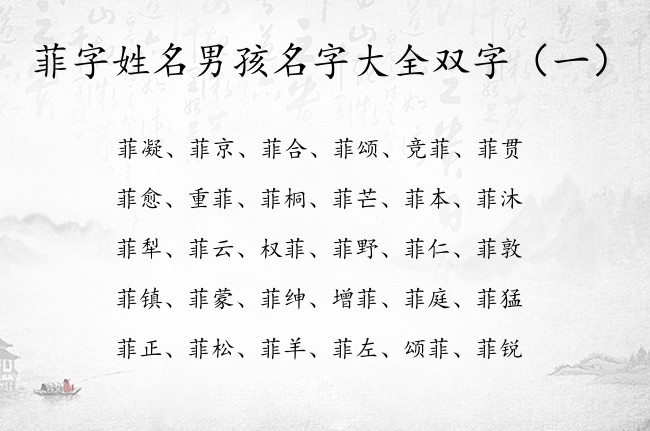 菲字姓名男孩名字大全双字（一）
菲凝、菲京、菲合、菲颂、竞菲、菲贯
菲愈、重菲、菲桐、菲芒、菲本、菲沐
菲犁、菲云、权菲、菲野、菲仁、菲敦
菲镇、菲蒙、菲绅、增菲、菲庭、菲猛
菲正、菲松、菲羊、菲左、颂菲、菲锐